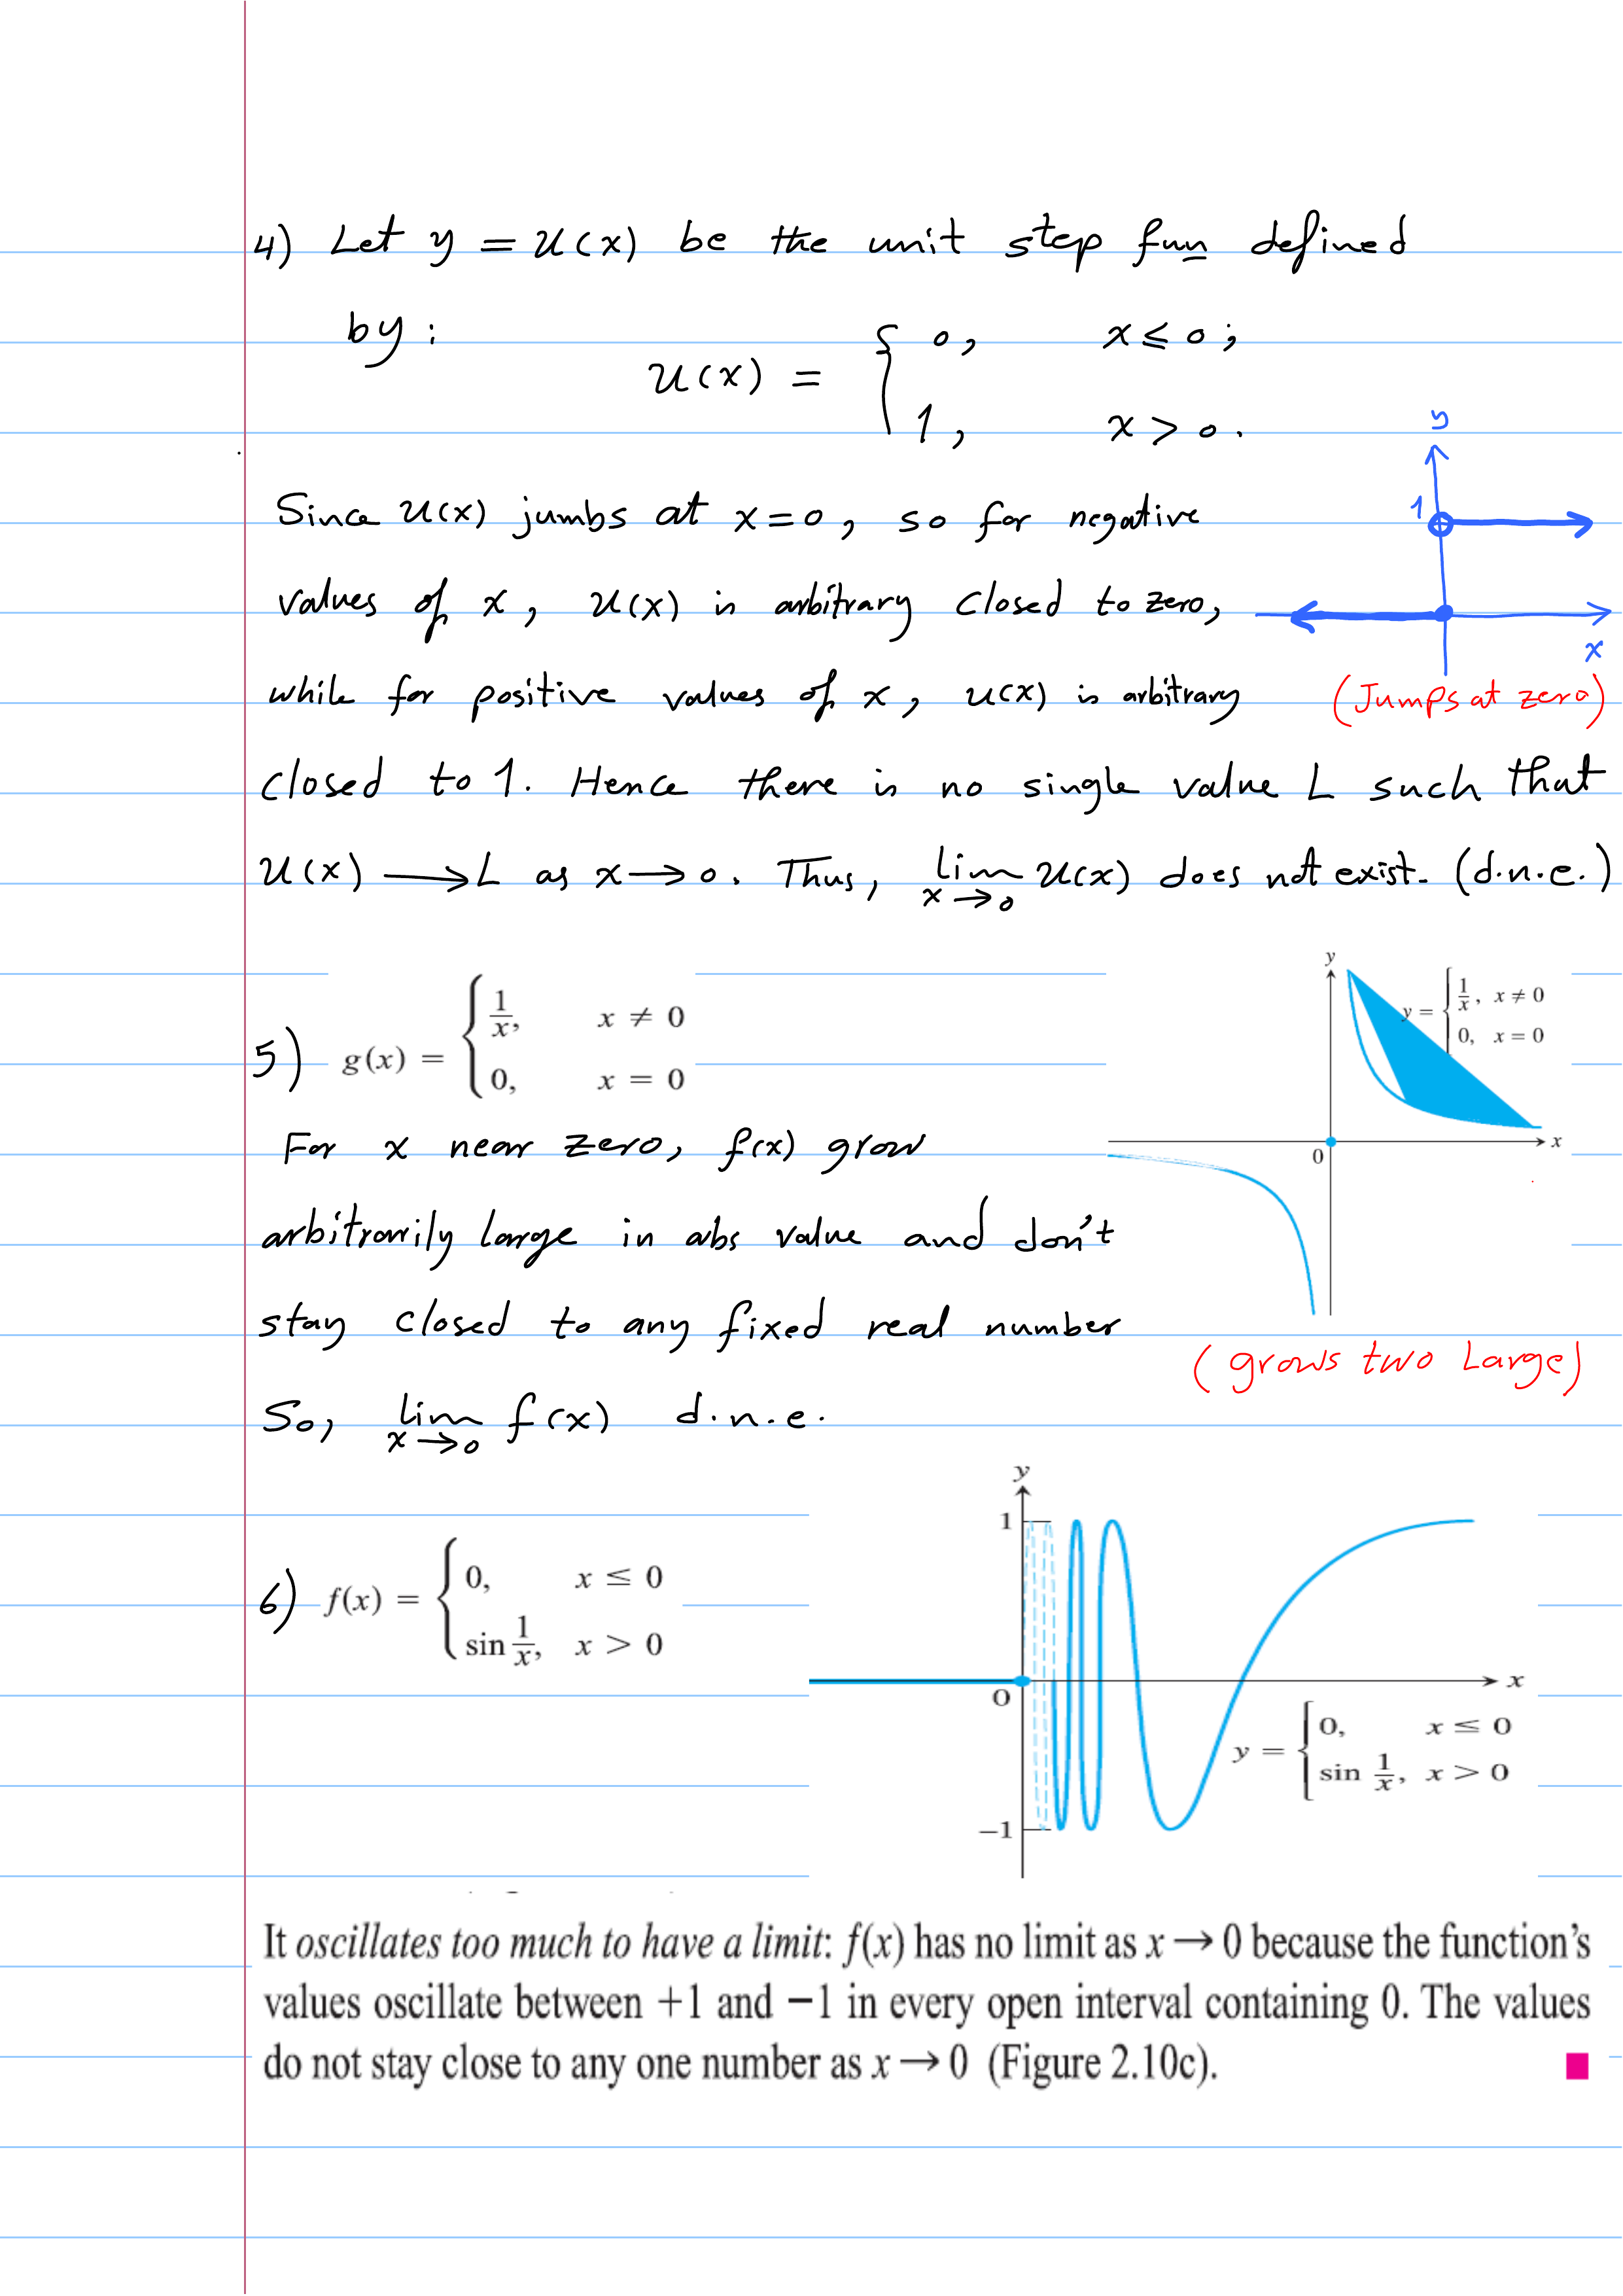 4) Let y = u(x) be the unit step fun defined
by :
u(x) = { 0, x ⩽ 0 ;
1, x > 0 .
y
1
x
Since u(x) jumbs at x=0, so for negative
values of x, u(x) is arbitrary closed to zero,
while for positive values of x, u(x) is arbitrary
(Jumps at zero)
closed to 1. Hence there is no single value L such that
u(x) ⟶ L as x → 0. Thus, lim x→0 u(x) does not exist. (d.n.e.)
5) g(x) = { 1/x, x ≠ 0
0, x = 0
y
y = { 1/x, x ≠ 0
0, x = 0
x
0
For x near zero, f(x) grow
arbitrarily large in abs value and don't
stay closed to any fixed real number
(grows two Large)
So, lim x→0 f(x) d.n.e.
6) f(x) = { 0, x ≤ 0
sin 1/x, x > 0
y
1
x
0
y = { 0, x ≤ 0
sin 1/x, x > 0
−1
It oscillates too much to have a limit: f(x) has no limit as x → 0 because the function's
values oscillate between +1 and −1 in every open interval containing 0. The values
do not stay close to any one number as x → 0 (Figure 2.10c).